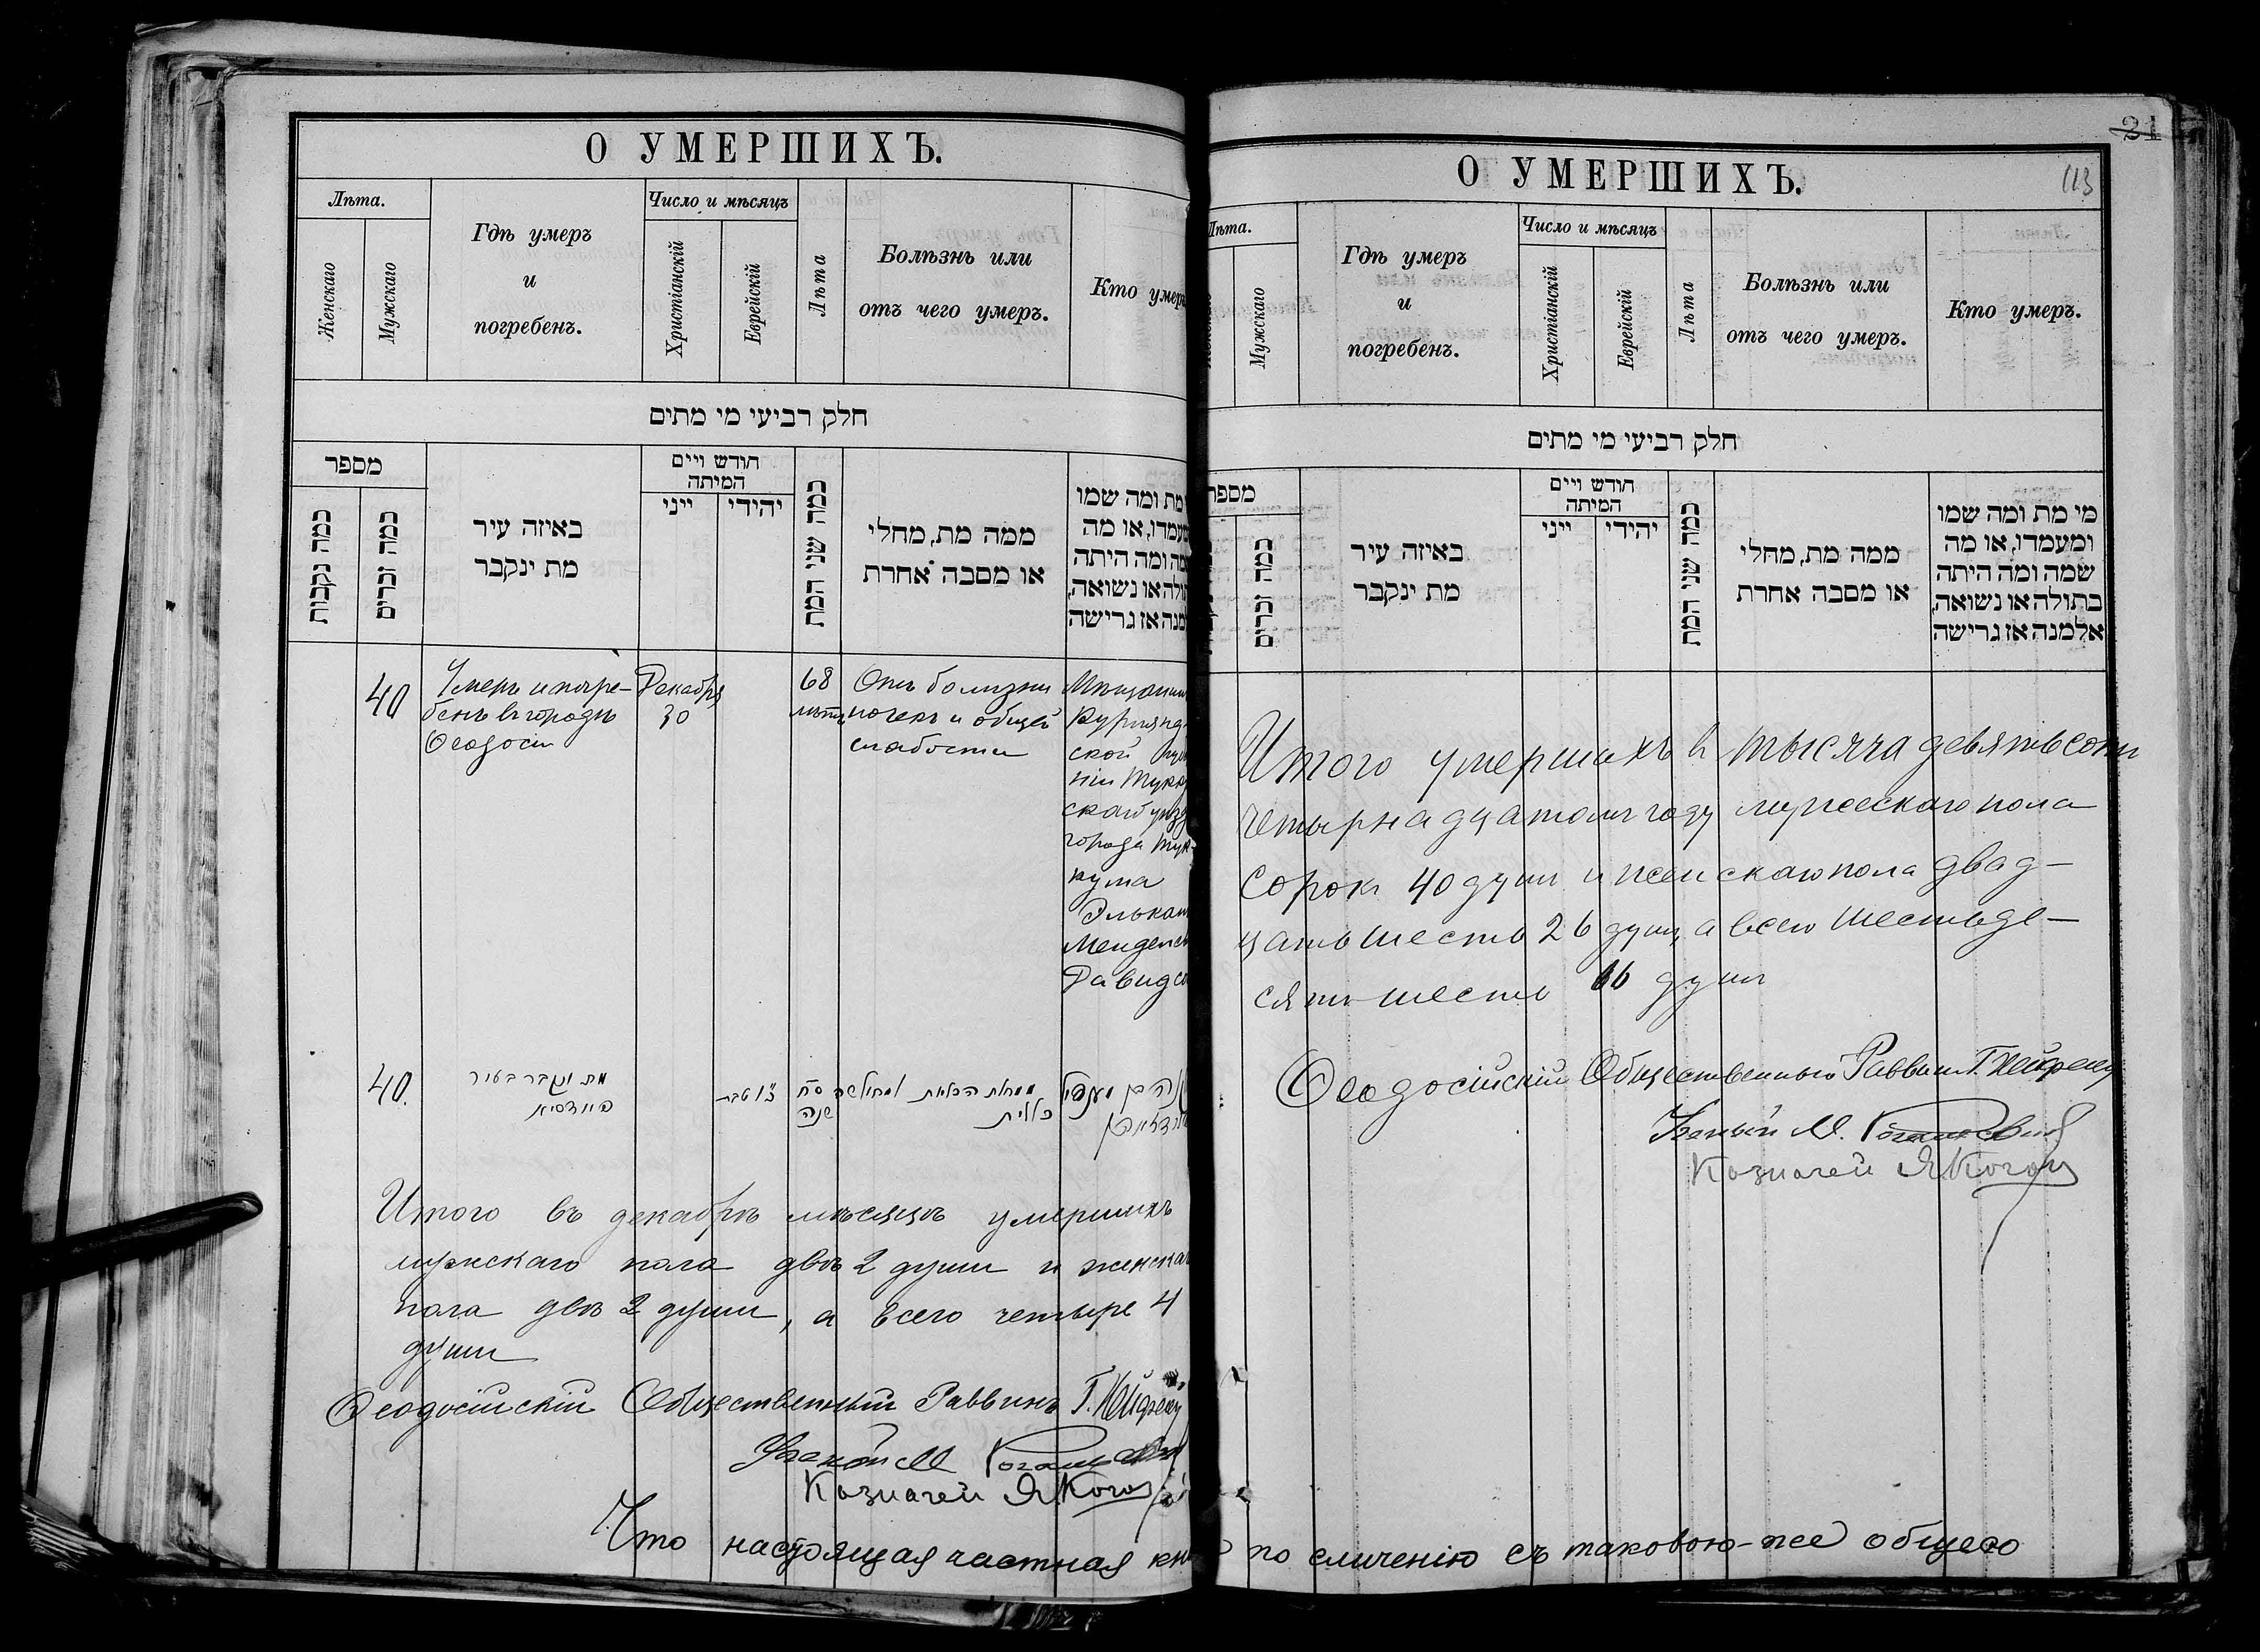 О УМЕРШИХЪ.
Лѣта.
Женскаго
Мужскаго
Гдѣ умеръ
и
погребенъ.
Число и мѣсяцъ
Христіанскій
Еврейскій
Лѣта
Болѣзнь или
отъ чего умеръ.
Кто умеръ
חלק רביעי מי מתים
מספר
כמה נקבות
כמה זכרים
באיזה עיר
מת ינקבר
חודש ויים
המיתה
ייני
יהודי
כמה שני המת
ממה מת, מחלי
או מסבה אחרת
מת ומה שמו
ומעמדו, או מה
שמה ומה היתה
בתולה או נשואה,
אלמנה אז גרישה
40
Умеръ и погре-
бенъ въ городѣ
Ѳеодосіи
Декабря
30
68
лѣтъ
Отъ болѣзни
почекъ и общей
слабости
Мѣщанинъ
Курлянд-
ской
ніи Тукк
скаго уѣзд
города Тук-
кума
Элькан
Мендел
Давидсо
40.
מת ונקבר בעיר
פיודסיא
טבת
סח
שנה
ממחלת הכליות וחולשה
כללית
Итого въ декабрѣ мѣсяцѣ умершихъ
мужскаго пола двѣ 2 души и женска
пола двѣ 2 души, а всего четыре 4
души
Ѳеодосійскій Общественный Раввинъ Г.
Ученый М.
Казначей Я Коган
Что настоящая частная кни
21
113
О УМЕРШИХЪ.
Лѣта.
Мужскаго
Гдѣ умеръ
и
погребенъ.
Число и мѣсяцъ
Христіанскій
Еврейскій
Лѣта
Болѣзнь или
отъ чего умеръ.
Кто умеръ.
חלק רביעי מי מתים
מספר
כמה זכרים
באיזה עיר
מת ינקבר
חודש ויים
המיתה
ייני
יהודי
כמה שני המת
ממה מת, מחלי
או מסבה אחרת
מי מת ומה שמו
ומעמדו, או מה
שמה ומה היתה
בתולה או נשואה,
אלמנה אז גרישה
Итого умершихъ в тысяча девятьсотъ
четырнадцатомъ году мужескаго пола
сорокъ 40 душъ и женскаго пола двад-
цать шесть 26 душъ, а всего шестьде-
сятъ шесть 66 душъ
Ѳеодосійскій Общественный Раввинъ Г.
Ученый М.
Казначей Я Коган
по сличенію съ таковою-же общею